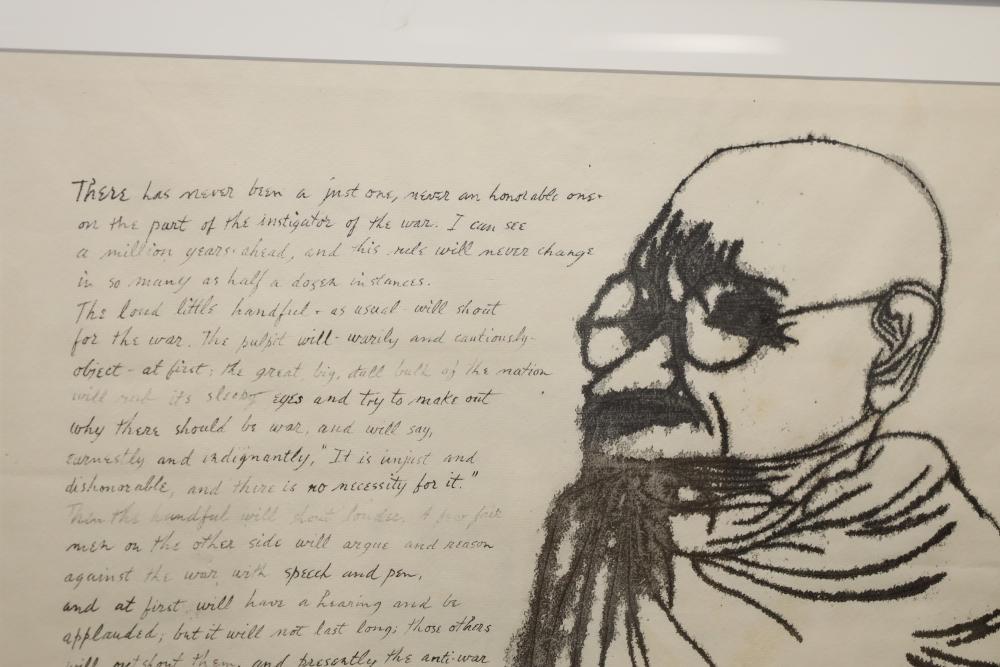 There has never been a just one, never an honorable one-
on the part of the instigator of the war. I can see
a million years ahead, and this rule will never change
in so many as half a dozen instances.
The loud little handful - as usual - will shout
for the war. The pulpit will - warily and cautiously -
object - at first; the great, big, dull bulk of the nation
will rub its sleepy eyes and try to make out
why there should be war, and will say,
earnestly and indignantly, "It is unjust and
dishonorable, and there is no necessity for it."
Then the handful will shout louder. A few fair
men on the other side will argue and reason
against the war with speech and pen,
and at first will have a hearing and be
applauded; but it will not last long; those others
will outshout them, and presently the anti-war